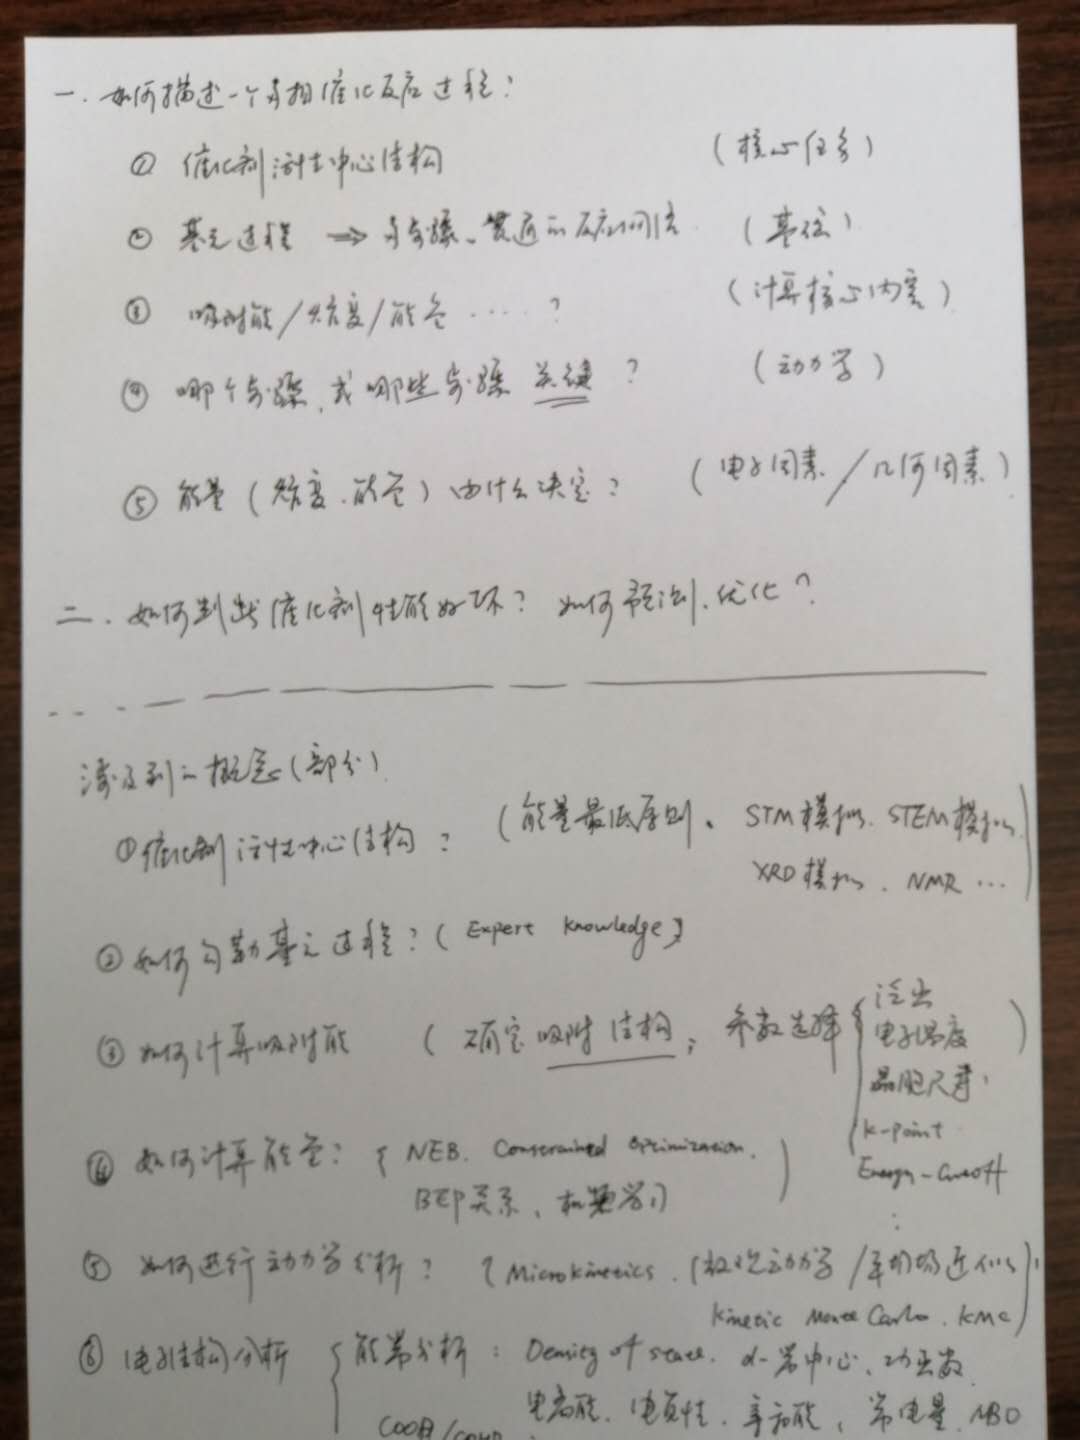 一. 如何描述一个多相催化反应过程?
① 催化剂活性中心结构 (核心任务)
② 基元过程 ⇒ 多步骤、普适的反应网络 (基础)
③ 吸附能/熵变/能垒 ····· ? (计算核心内容)
④ 哪个步骤, 或哪些步骤 关键 ? (动力学)
⑤ 能量 (熵变、能垒) 由什么决定? (电子因素 / 几何因素)
二. 如何判断催化剂性能好坏? 如何预测、优化?
涉及到的概念 (部分)
① 催化剂活性中心结构? (能量最低原则、STM模拟、STEM模拟、
XRD模拟、NMR ...)
② 如何勾勒基元过程? (Expert Knowledge)
③ 如何计算吸附能 (确定吸附结构; 参数选择 { 泛函
电子温度
晶胞尺寸
k-point
Energy-cutoff
⋮ )
④ 如何计算能垒? (NEB. Constrained optimization.
BEP关系、机器学习)
⑤ 如何进行动力学分析? (Microkinetics. (微观动力学/平均场近似)
Kinetic Monte Carlo. KMC)
⑥ 电子结构分析 { 能带分析: Density of state. d-带中心、功函数
电离能、电负性、亲和能、带电量、NBO
COOP/COHP